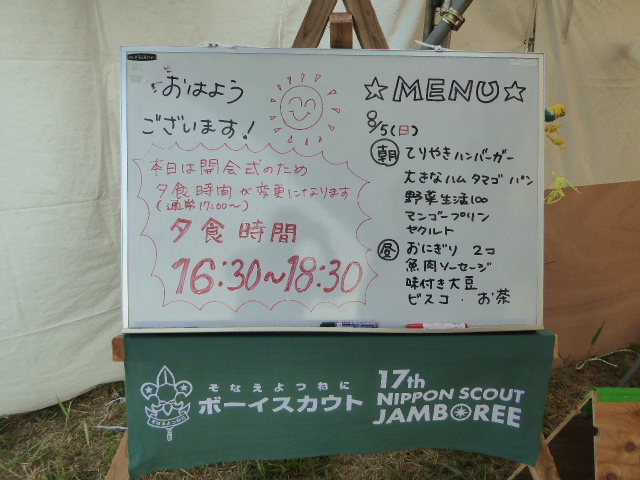 おはよう
ございます!
本日は開会式のため
夕食時間が変更になります
(通常17:00~)
夕食時間
16:30~18:30
☆MENU☆
8/5(日)
朝 てりやきハンバーガー
大きなハムタマゴパン
野菜生活100
マンゴープリン
ヤクルト
昼 おにぎり 2コ
魚肉ソーセージ
味付き大豆
ビスコ・お茶
そなえよつねに
ボーイスカウト
17th
NIPPON SCOUT
JAMBOREE